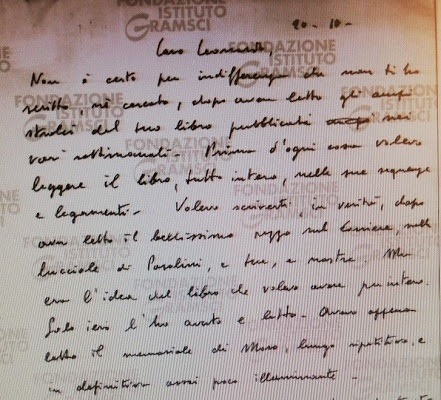 FONDAZIONE
ISTITUTO
GRAMSCI
20 - 10 -
Caro Leonardo
Non è certo per indifferenza che non ti ho
scritto, nè cercato, dopo aver letto gli
stralci del tuo libro pubblicati nei
vari settimanali - Prima d'ogni cosa volevo
leggere il libro, tutto intero, nelle sue sequenze
e legamenti - Volevo scriverti, in verità, dopo
aver letto il bellissimo pezzo sul Corriere, sulle
lucciole di Pasolini, e tue, e nostre. Ma
era l'idea del libro che volevo avere per intero.
Solo ieri l'ho avuto e letto - Avevo appena
letto il memoriale di Moro, lungo ripetitivo, e
in definitiva assai poco illuminante -